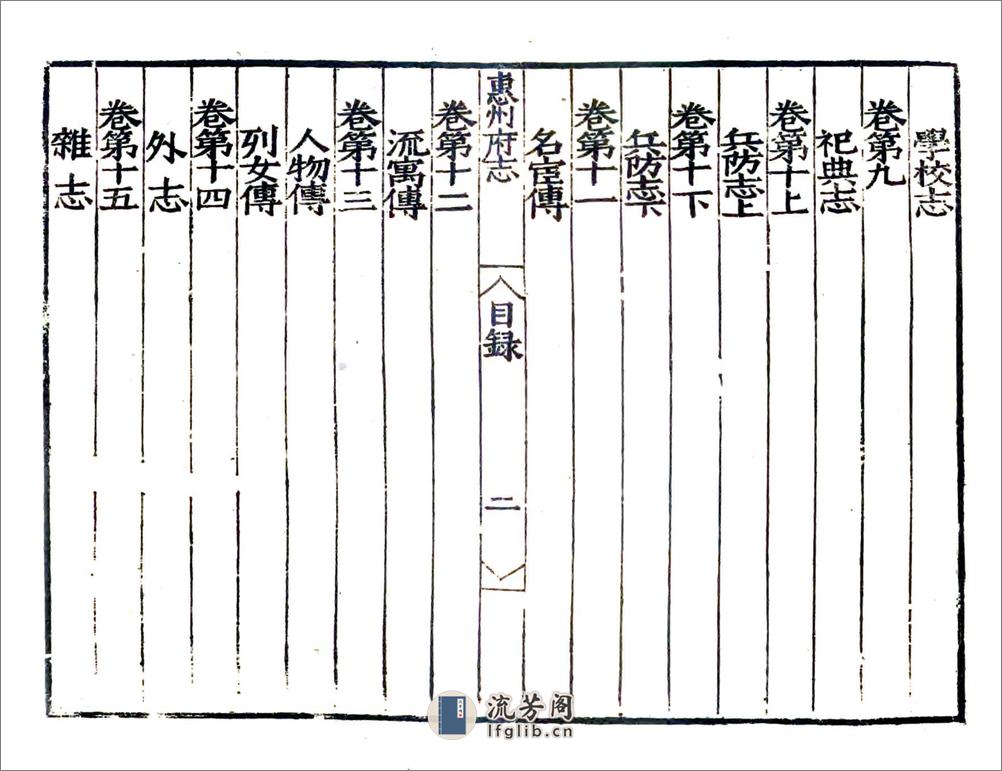 學校志
卷第九
祀典志
卷第十上
兵防志上
卷第十下
兵防志下
卷第十一
名宦傳
惠州府志
目録
二
卷第十二
流寓傳
卷第十三
人物傳
列女傳
卷第十四
外志
卷第十五
雜志
流芳阁
lfglib.cn